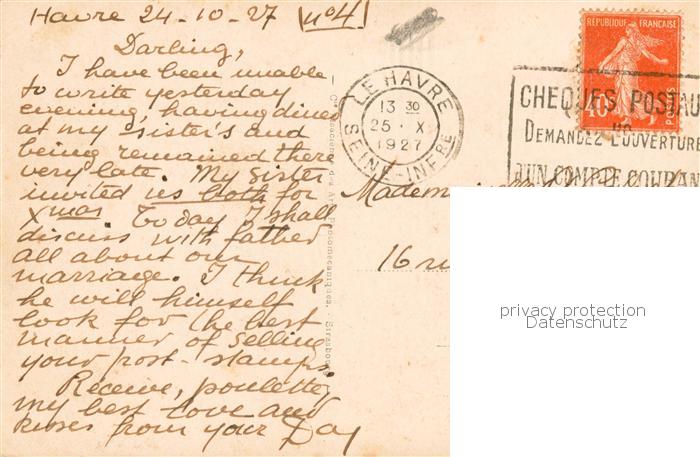 Havre 24-10-27 (no 4)
Darling,
I have been unable
to write yesterday
evening, having dined
at my sister's and
being remained there
very late. My sister
invited us both for
Xmas. To day I shall
discuss with father
all about our
marriage. I think
he will himself
look for the best
manner of selling
your post-stamps.
Receive, poulette,
my best love and
kisses from your Day
LE HAVRE
13 30
25 · X
1927
SEINE-INFRE
REPUBLIQUE FRANÇAISE
POSTES
CHEQUES POSTAU
DEMANDEZ L'OUVERTURE
D'UN COMPTE COURAN
Madem
16 ru
privacy protection
Datenschutz